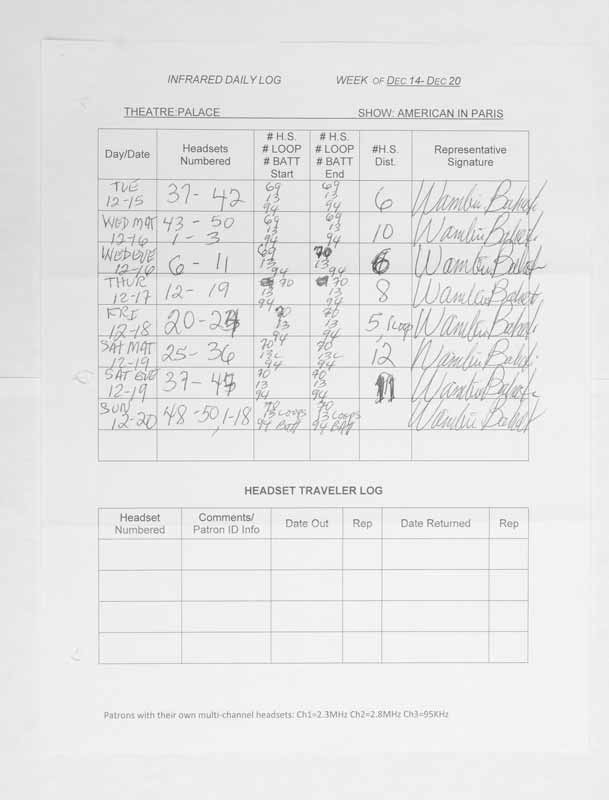 INFRARED DAILY LOG WEEK OF DEC 14- DEC 20
THEATRE:PALACE SHOW: AMERICAN IN PARIS
Day/Date Headsets Numbered # H.S. # LOOP # BATT Start # H.S. # LOOP # BATT End #H.S. Dist. Representative Signature
TUE 12-15 37- 42 69 13 94 69 13 94 6
WED MAT 12-16 43 - 50 1 - 3 69 13 94 69 13 94 10
WED EVE 12-16 6 - 11 69 13 94 70 13 94 6
THUR 12-17 12 - 19 70 13 94 70 13 94 8
FRI 12-18 20-24 70 13 94 70 13 94 5, 1 Loop
SAT MAT 12-19 25 - 36 70 13L 94 70 13L 94 12
SAT EVE 12-19 37- 47 70 13 94 70 13 94 11
SUN 12-20 48 -50, 1-18 70 13 LOOPS 94 BATT 70 13 LOOPS 94 BATT
HEADSET TRAVELER LOG
Headset Numbered Comments/ Patron ID Info Date Out Rep Date Returned Rep
Patrons with their own multi-channel headsets: Ch1=2.3MHz Ch2=2.8MHz Ch3=95KHz